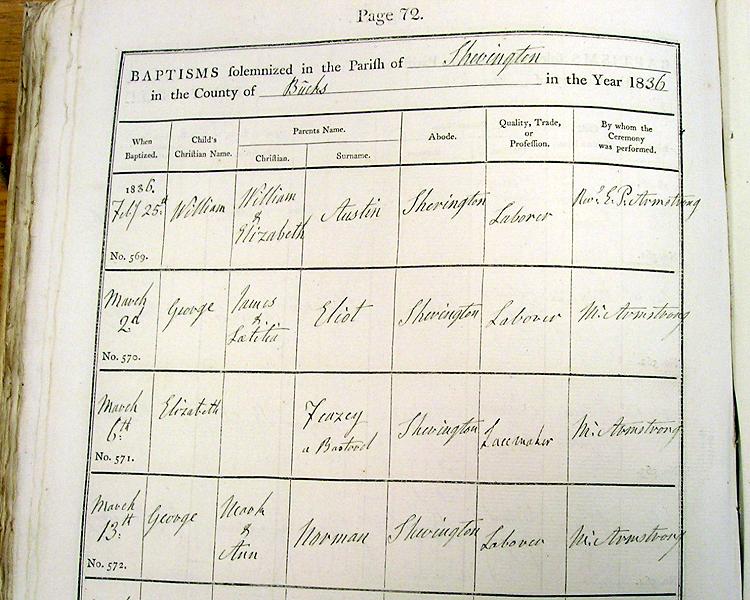 Page 72.
BAPTISMS solemnized in the Parish of Sherington
in the County of Bucks in the Year 1836
When Baptized.
Child's Christian Name.
Parents Name.
Christian.
Surname.
Abode.
Quality, Trade, or Profession.
By whom the Ceremony was performed.
1836.
Feby 25th William William & Elizabeth Austin Sherington Laborer Revd. E. P. Armstrong
No. 569.
March 2d George James & Lætitia Eliot Sherington Laborer Mr. Armstrong
No. 570.
March 6th: Elizabeth Feazey a Bastard Sherington Lacemaker Mr. Armstrong
No. 571.
March 13th: George Mark & Ann Norman Sherington Laborer Mr. Armstrong
No. 572.